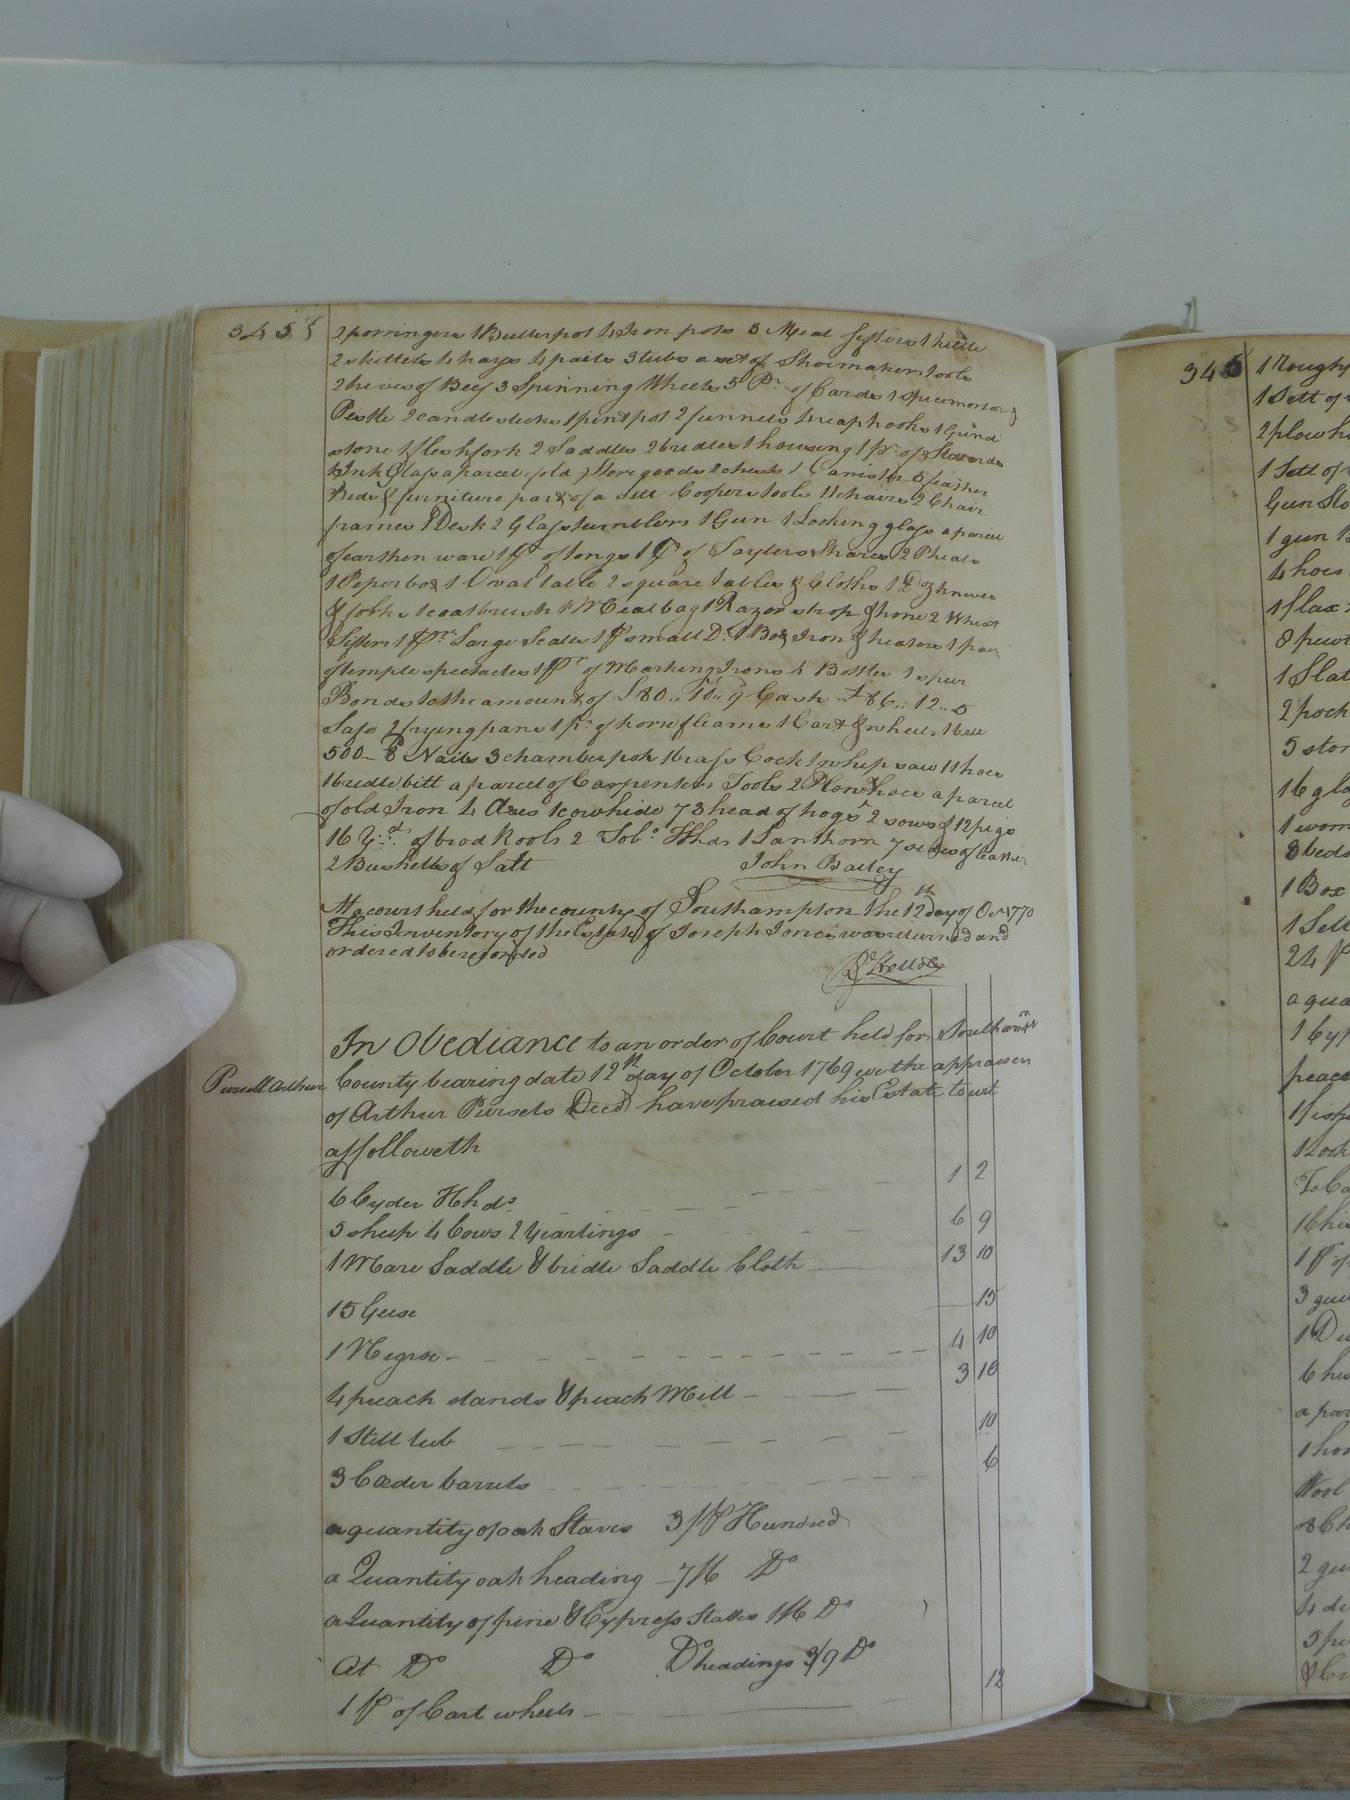 345
2 porringers 1 Butter pot 4 Iron pots 3 Meal sifters 1 kettle
2 skillets 4 hargs 4 pails 3 tubs a set of Shoemakers tools
2 hives of Bees 3 Spinning Wheels 5 Pr. of Cards 1 spice mortor &
Pestle 2 candlesticks 1 pint pot 2 funnels 4 reaphooks 1 Grind
stone 1 fleshfork 2 Saddles 2 bridles 1 housing 1 pr. of
4 Ink Glass a parcel of old Store goods 2 chests 1 Canister 5 feather
Beds & furniture part of a Sett Coopers tools 11 chairs 2 Chair
frames 1 Desk 2 Glass tumblers 1 Gun 1 Looking glass a parcel
of earthen ware 1 pr of tongs 1 pr of Taylors Shares 2 Pheals
1 Peper box 1 Oval table 2 square tables & Cloths 1 Dz knives
& forks 1 coat brush 1 Meal bag 1 Razor strop & hone 2 Wheat
Sifters 1 Pr. Large Scales 1 Pr small Do. 1 Box Iron & heaters 1 pair
of temple spectacles 1 Pr of Marking Irons 4 Bottles 1 spur
Bonds to the amount of £80.. 10.. 9 Cash £86.. 12.. 5
Safe 2 frying pans 1 pr. of horse fleams 1 Cart & wheels 1 bell
500 8 Nails 3 chamber pots 1 brass Cock 1 whip saw 11 hoes
1 bridle bitt a parcel of Carpenters Tools 2 Plow hoes a parcel
of old Iron 4 Axes 1 cowhide 73 head of hogs 2 sows & 12 pigs
16 Yds of brod Rools 2 Tobo. Hhds 1 Lanthorn 7 sides of leather
2 Bushells of Salt John Bailey
At a court held for the county of Southampton the 12th day of Oct 1770
This Inventory of the Estate of Joseph Jones was returned and
ordered to be recorded
In Obediance to an order of Court held for Southamp
Pursell Arthur County bearing date 12th day of October 1769 we the appraisers
of Arthur Pursels Deced have praised his Estate to wit
as followeth
6 Cyder Hhds 1 2
5 sheep 4 Cows 2 Yearlings 6 9
1 Mare Saddle & bridle Saddle Cloth 13 10
15 Geese 15
1 Negroe 4 10
4 peach stands & peach Mill 3 10
1 Still tub 10
3 Cæder barrels 6
a quantity of oak Staves 3/ pr Hundred
a Quantity oak heading 7/6 Do
a Quantity of pine & Cypress Staves 1/6 Do
At Do Do Do headings 3/9 Do
1 pr of Cart wheels 12
345
1 Rough
1 Sett of
2 plow h
1 Sett of
Gun Sto
1 gun B
4 hoes
1 flax
8 pewt
1 Slat
2 pock
5 ston
16 gla
1 wom
3 beds
1 Box
1 Sell
24 P
a qua
1 Cyp
peace
1 Look
3 gu
6 he
a par
1 hor
Wool
2 gu
4 de